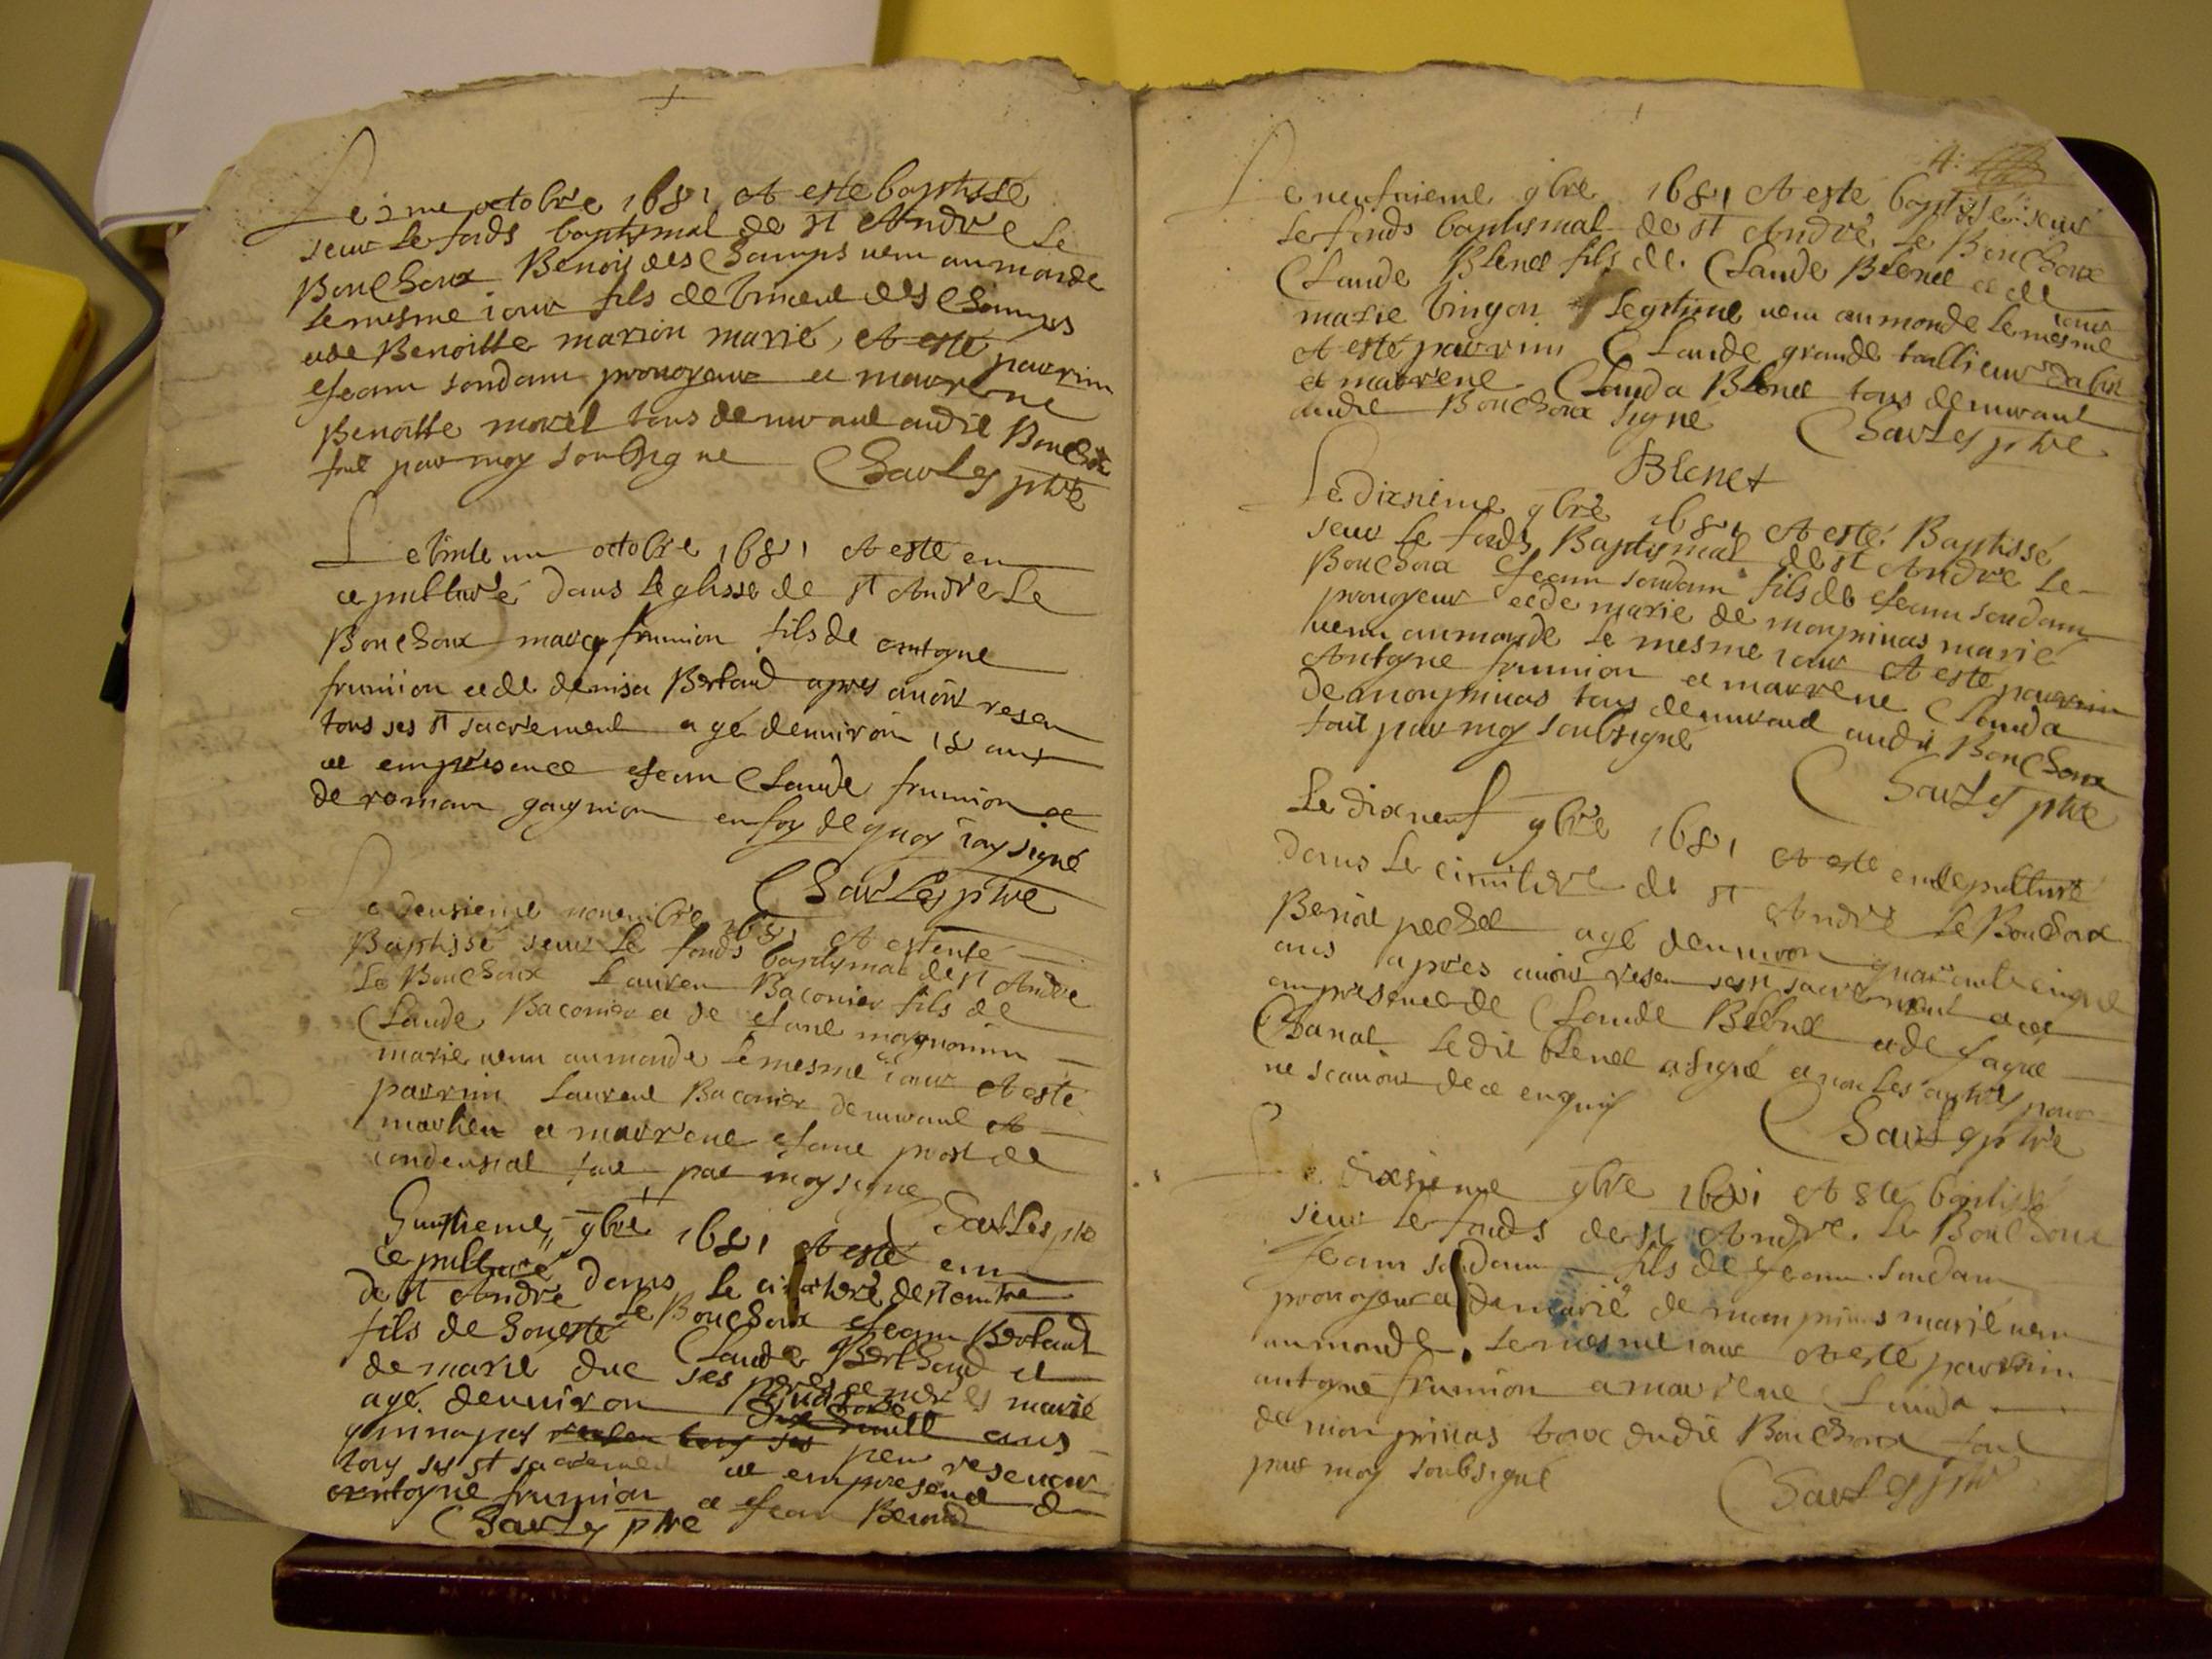 Le 2 me octobre 1681 At este baptissé
seur Le fonds baptismal de st Andre Le
Bouchoux Benoit des Champs venu au monde
Le mesme iour fils de des Champs
et de Benoitte marion marié, At esté parrin
Jean soudam prouoyeur et marrene
Benoitte morel tous demurant audit Bouchoux
fait par moy soubsigne Charles ptre
Le vinte un octobre 1681 At este en
cepulturé dans Leglisse de st Andre Le
Bouchoux marcq frunion fils de antoyne
frunion et de denisa Bertaud apres auoir reseu
tous ses st sacrement agé denuiron 18 ans
et empresence Jean Claude frunion et
de roman gagnion en foy de quoy iay signé
Charles ptre
Le deusieme nouembre 1681 At estenté
Baptissé seur Le fonds baptismal de st Andre
Le Bouchoux Lauren Baconier fils de
Claude Baconier et de Jane
marié venu au monde Le mesme iour At esté
parrin Laurent Baconier demurant A
marlieu et marrene Jane prost de
condensiat fait par moy signe
Charles ptre
9bre 1681 At esté en
cepulturé dans Le cimitere de st
de st Andre Le Bouchoux Jean Bertaud
fils de honeste Claude Berthaud et
de marie duc ses pere et mere marié
agé denuiron ans
quin na pas peu reseuoir
tous ses st sacrement et empresence de
antoyne frunion et Jean
Charles ptre
4:
Le neufuieme 9bre 1681 At esté baptisse seur
Le fonds baptismal de st André Le Bouchoux
Claude Blenet fils de Claude Blenet et de
marie bingon Legitime venu au monde Le mesme iour
At esté parrin Claude grande taillieur dabis
et marrene Clauda Blenet tous demurant
audit Bouchoux signé Charles ptre
Blenet
Le dixsieme 9bre 1681 At esté Baptissé
seur Le fonds Baptismal de st Andre Le
Bouchoux Jean soudam fils de Jean soudam
prouoyeur et de marie de monprinas marié
venu au monde Le mesme iour At este parrin
Antoyne frunion et marrene Clauda
de monprinas tous demurant audit Bouchoux
fait par moy soubsigné
Charles ptre
Le dixneuf 9bre 1681 At esté encepulturé
dans Le cimitere de st Andre Le Bouchoux
Benoit pochet agé denuiron quarante cinque
ans apres auoir reseu ses st sacrement et ce
empresence de Claude Blenet et de Jaque
Chanal Ledit blenet a signé et non Les autres pour
ne scauoir de ce enquis
Charles ptre
Le dixsieme 9bre 1681 At esté baptissé
seur Le fonds de st Andre Le Bouchoux
Jean soudam fils de Jean soudam
prouoyeur et de marie de monprinas marié venu
au monde Le mesme iour At esté parrin
antoyne frunion et marrene Clauda
de monprinas toux dudit Bouchoux fait
par moy soubsigné
Charles ptre